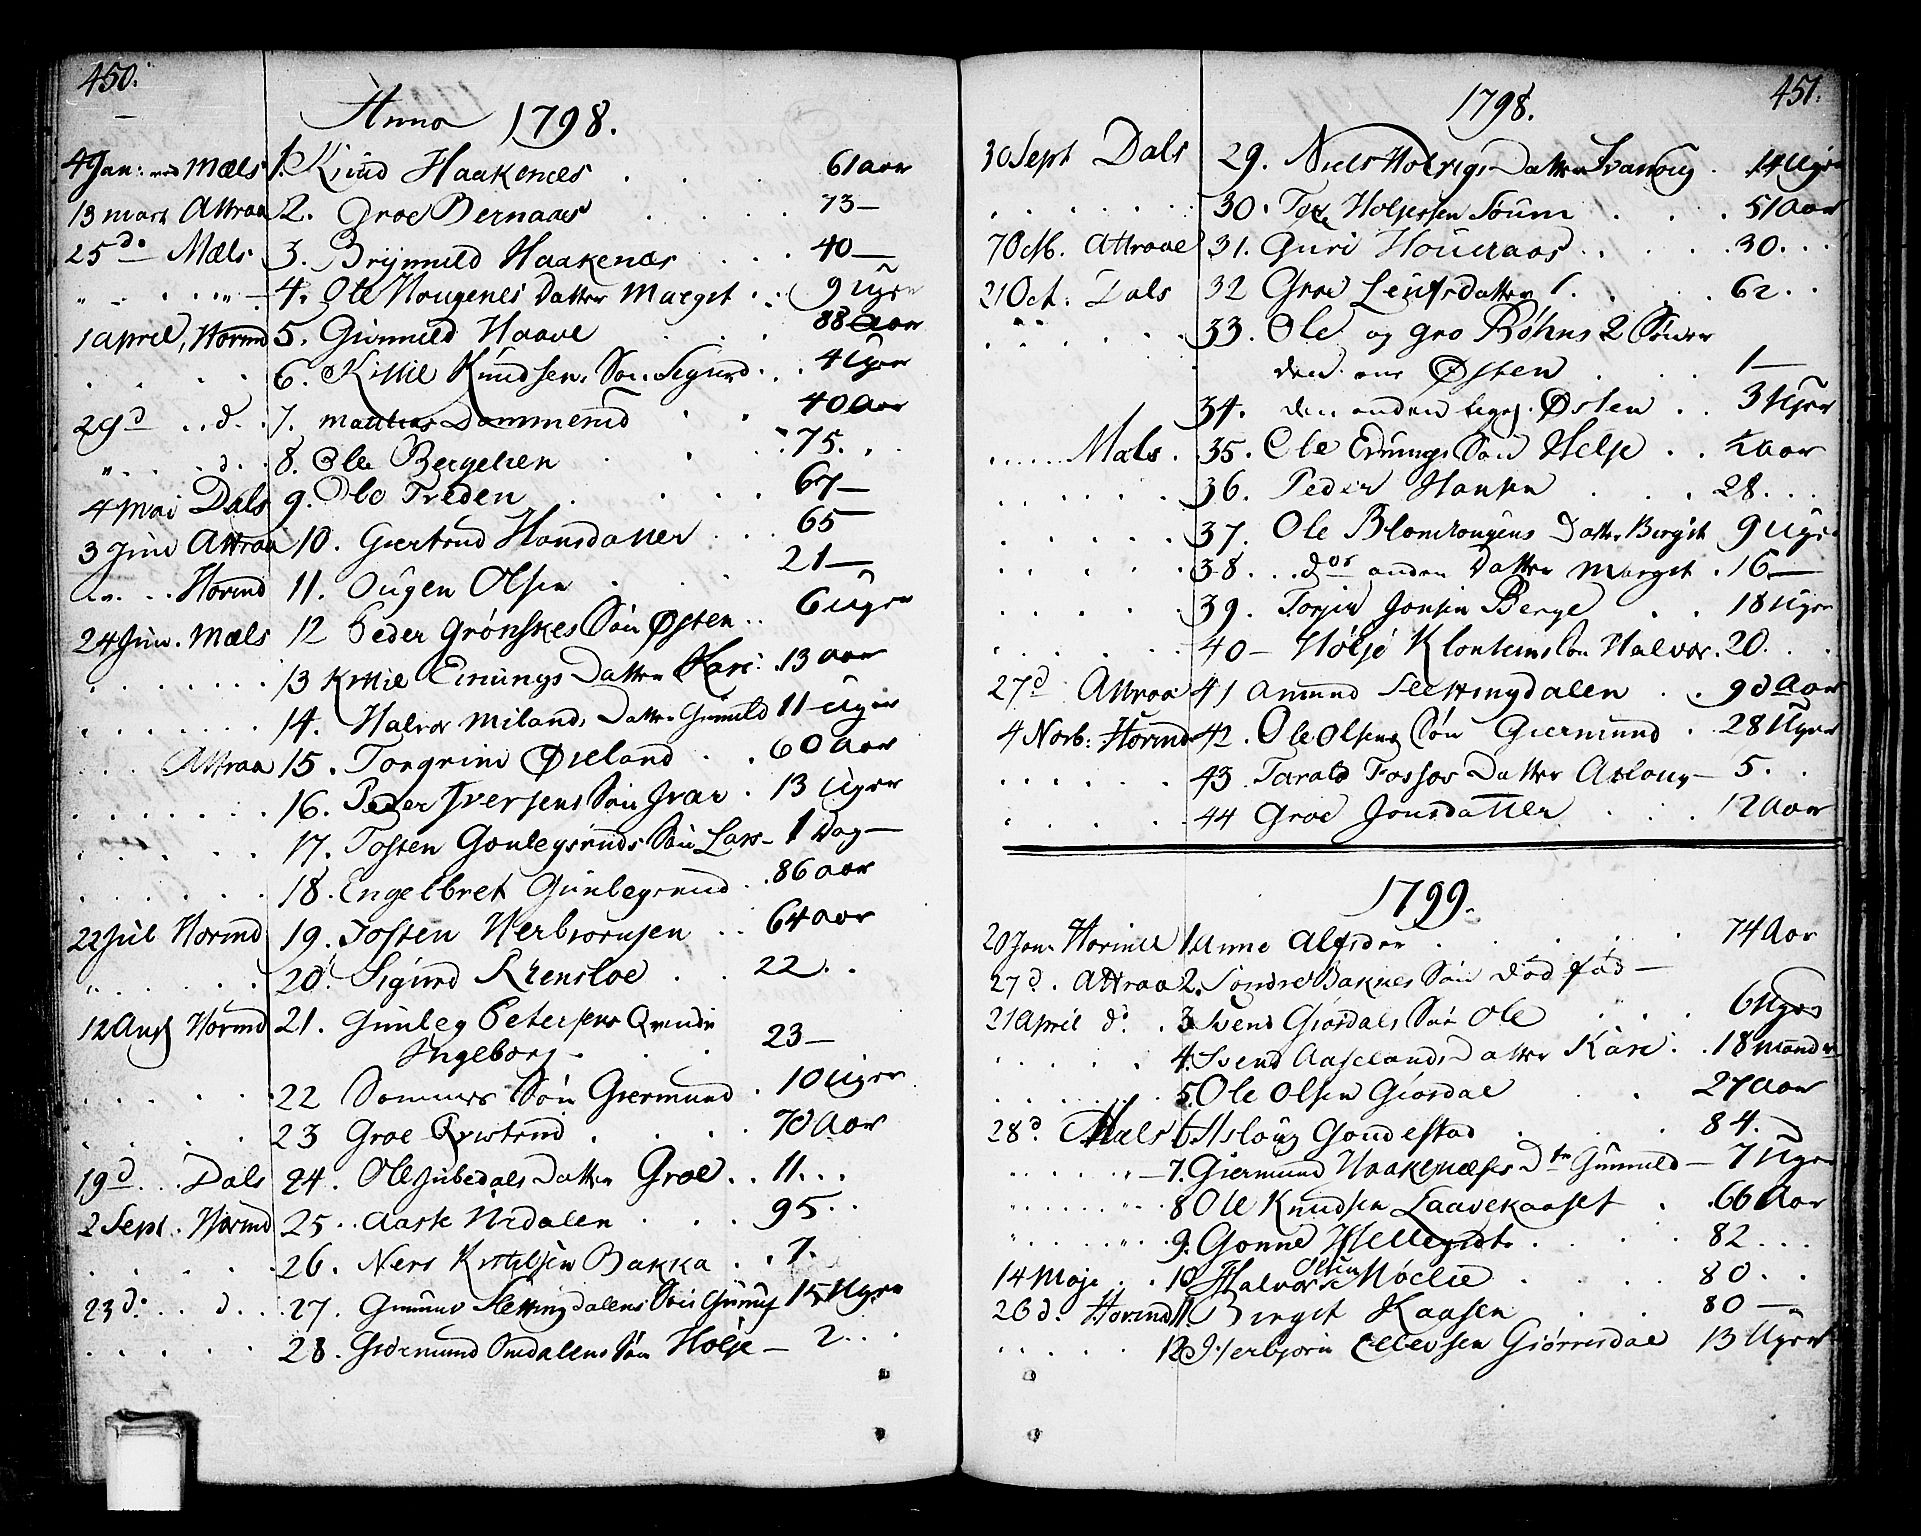 450.
Anno 1798.
4 Jan: Mæls 1. Knud Haakenes . . . 61 aar
13 mart Attraa 2. Groe Bernaaes . . . 73 —
25 do Mæls 3. Brÿnnild Haakenæs . . . 40 —
4. Ole Hougenes Datter Margit . . 9 Uger
1 april, Horind 5. Gunnild Haave . . . 88 Aar
6. Kittil Knudsens Søn Sigurd . . 4 Uger
29 d . . d. 7. Mattias Dommerud . . 40 Aar
. . d. . 8. Ole Bergelien . . . 75 . .
4 Mai Dals 9. Ole Treden . . . 67 —
3 Juni Attraa 10. Giertrud Hansdatter . . . 65 —
Horind 11. Ougen Olsen . . . 21 —
24 Jun. Mæls 12 Peder Grønskes Søn Østen . . 6 Uger
13 Kittil Einungs Datter Kari . 13 aar
14. Halvor Milands Datter Gunild 11 Uger
Attraa 15. Torgrim Øveland . . . 60 Aar
16. Peder Iversens Søn Ivar . 13 Uger
17. Tosten Gonlegsruds Søn Lars — 1 Dag —
18. Engelbret Gunlegsrud . . 86 aar
22 Jul Horind 19. Tosten Herbiornsen . . 64 Aar
20. Sigurd . . 22 . .
12 Aug Horind 21. Gunleg Petersens Qvinde
Ingeborg . . . 23 —
22 Sommers Søn Giermund . 10 Uger
23 Groe Qvistrud . . . 70 Aar
19 d . . Dals 24. Ole Jubedals Datter Groe . . 11 . . .
2 Sept . Horind 25. Aaste Nidalen . . . 95 . .
26. Kittilsen Bakka . . 7.
23 d. . . d. . 27. Gunnar Slettingdalens Søn 15 Uger
28. Giermund Søn Holje — 2 . . .
451.
1798.
30 Sept Dals 29. Niels Datter . 14 Uger
30. Tor Holjessen Soum . . . 51 Aar
7 Octb. Attraae 31. Guri Houeraas . . . 30 . . .
21 Oct: Dals 32 Groe Leufsdatter . . . 62 . .
33. Ole og Gro Bøhns 2 Sønner
den ene Østen . . . 1 —
34. den anden Østen . . 3 Uger
Mæls . 35. Ole Einungs Søn Helje . . ½ Aar
36. Peder Hansen . . . 28 . . .
37. Ole Blomhougens Datter Bergit 9 Uger
38. . . dos anden Datter Margit . 16 —
39. Torjer Jonsen Berge . . 18 Uger
40 — Holje Klonteins Søn Halvor . 20 . . .
27 d Attraa 41 Amund Slettingdalen . . 90 Aar
4 Novb: Horind 42. Ole Olsens Søn Giermund . 28 Uger
43. Tarald Fossos Datter Asloug — 5 . .
44 Groe Jonsdatter . . . 12 Aar
1799.
20 Jan. Horind 1 Anne Alfsdtr . . . 74 Aar
27 d. Attraa 2. Søndre Baknes Søn død fød —
21 April do . 3 Svend Giøsdals Søn Ole . . . 6 Uger
4. Svend Aaselands Datter Kari . . 18 Maander
5. Ole Olsen Giøsdal . . 27 Aar
28 d. Mæls 6 Asloug Gondestad . . . 84. —
7. Giermund Haakenæses Dtr Gunnild — 7 Uger
8 Ole Knudsen Laavekaaset . . 66 Aar
9. Gonne . . . . 82 . . .
14 Maji . . 10 Halvor Olsen Møelie . . . 80 . .
26 d. Horind 11 Birgit Kaasen . . 80 —
12 Herbjørn Ellevsen Giørrisdal 13 Uger